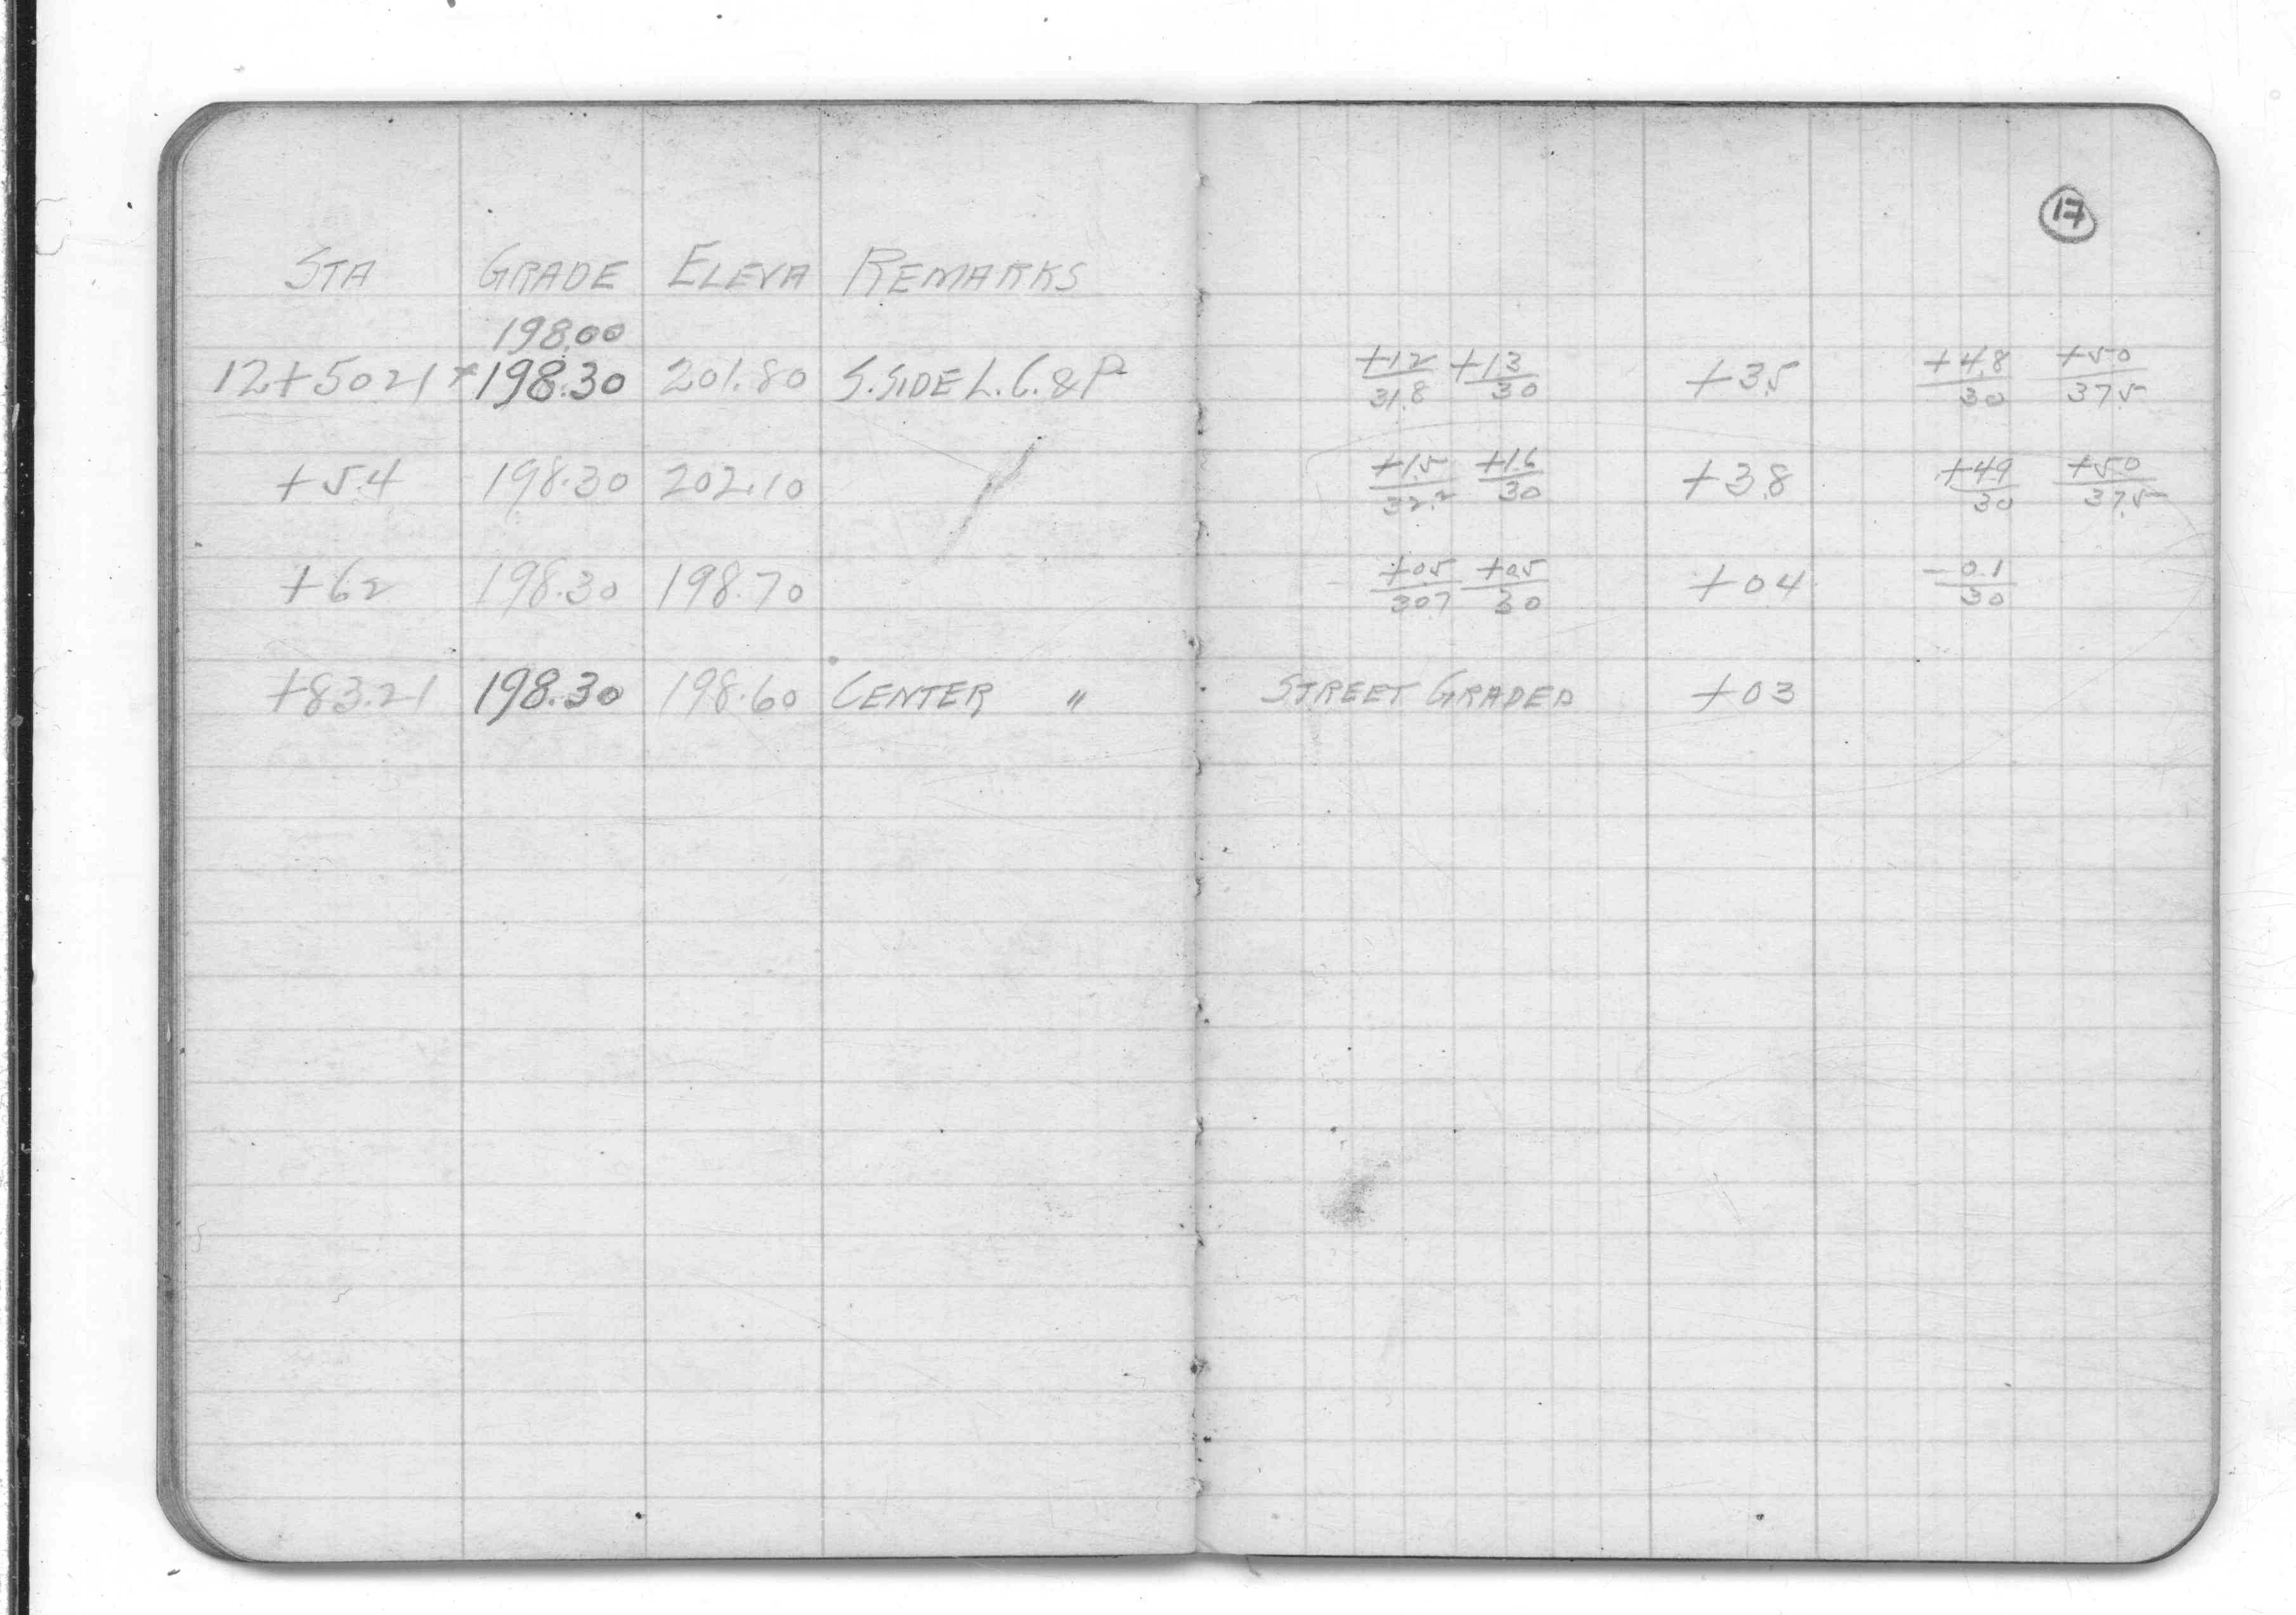 17
STA GRADE ELEVA REMARKS
198.00
12+50 21 * 198.30 201.80 S. SIDE L. C. & P +1.2/31.8 +1.3/30 +3.5 +4.8/30 +5.0/37.5
+54 198.30 202.10 +1.5/32.2 +1.6/30 +3.8 +4.9/30 +5.0/37.5
+62 198.30 198.70 +0.5/30.7 +0.5/30 +0.4 -0.1/30
+83.21 198.30 198.60 CENTER " STREET GRADED +0.3